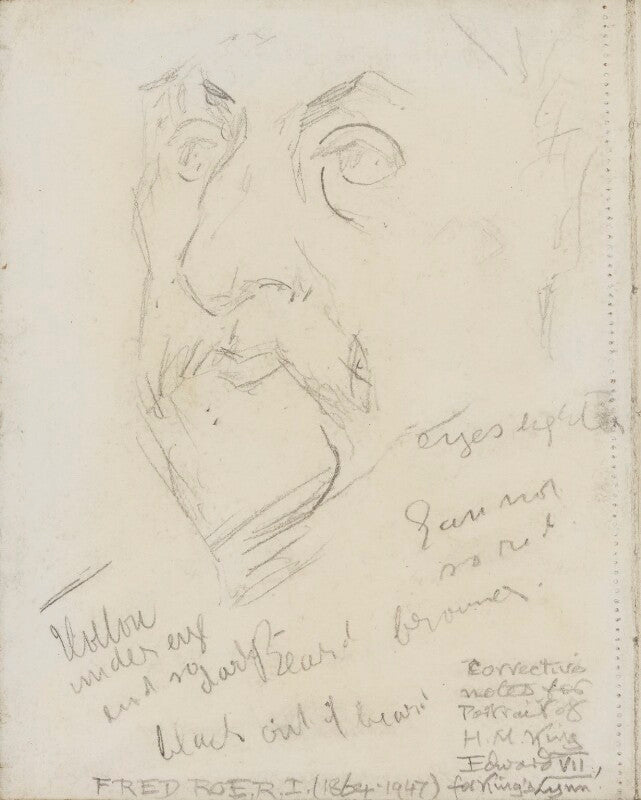 eyes lighter
Ears not
so red
Hollow
under eye
and not
Beard browner.
black out of beard
Corrective
notes for
Portrait of
H.M. King
Edward VII,
for King's Lynn.
FRED ROE, R.I. (1864-1947)